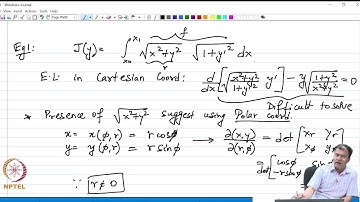 Windows Journal
Eg1: J(y) = ∫_{x₀}^{x₁} √(x²+y²) √(1+y'²) dx
f
r
E-L: in Cartesian Coord: d/dx [ √(x²+y²)/√(1+y'²) y' ] - y √(1+y'²)/√(x²+y²) = 0
Difficult to solve
* Presence of √(x²+y²) suggest using Polar coord.
x = x(ϕ,r) = r cosϕ → ∂(x,y)/∂(r,ϕ) = det [ x_r y_r
y = y(ϕ,r) = r sinϕ x_ϕ
= det [ cosϕ sin
-r sinϕ
∵ r≠0
NPTEL